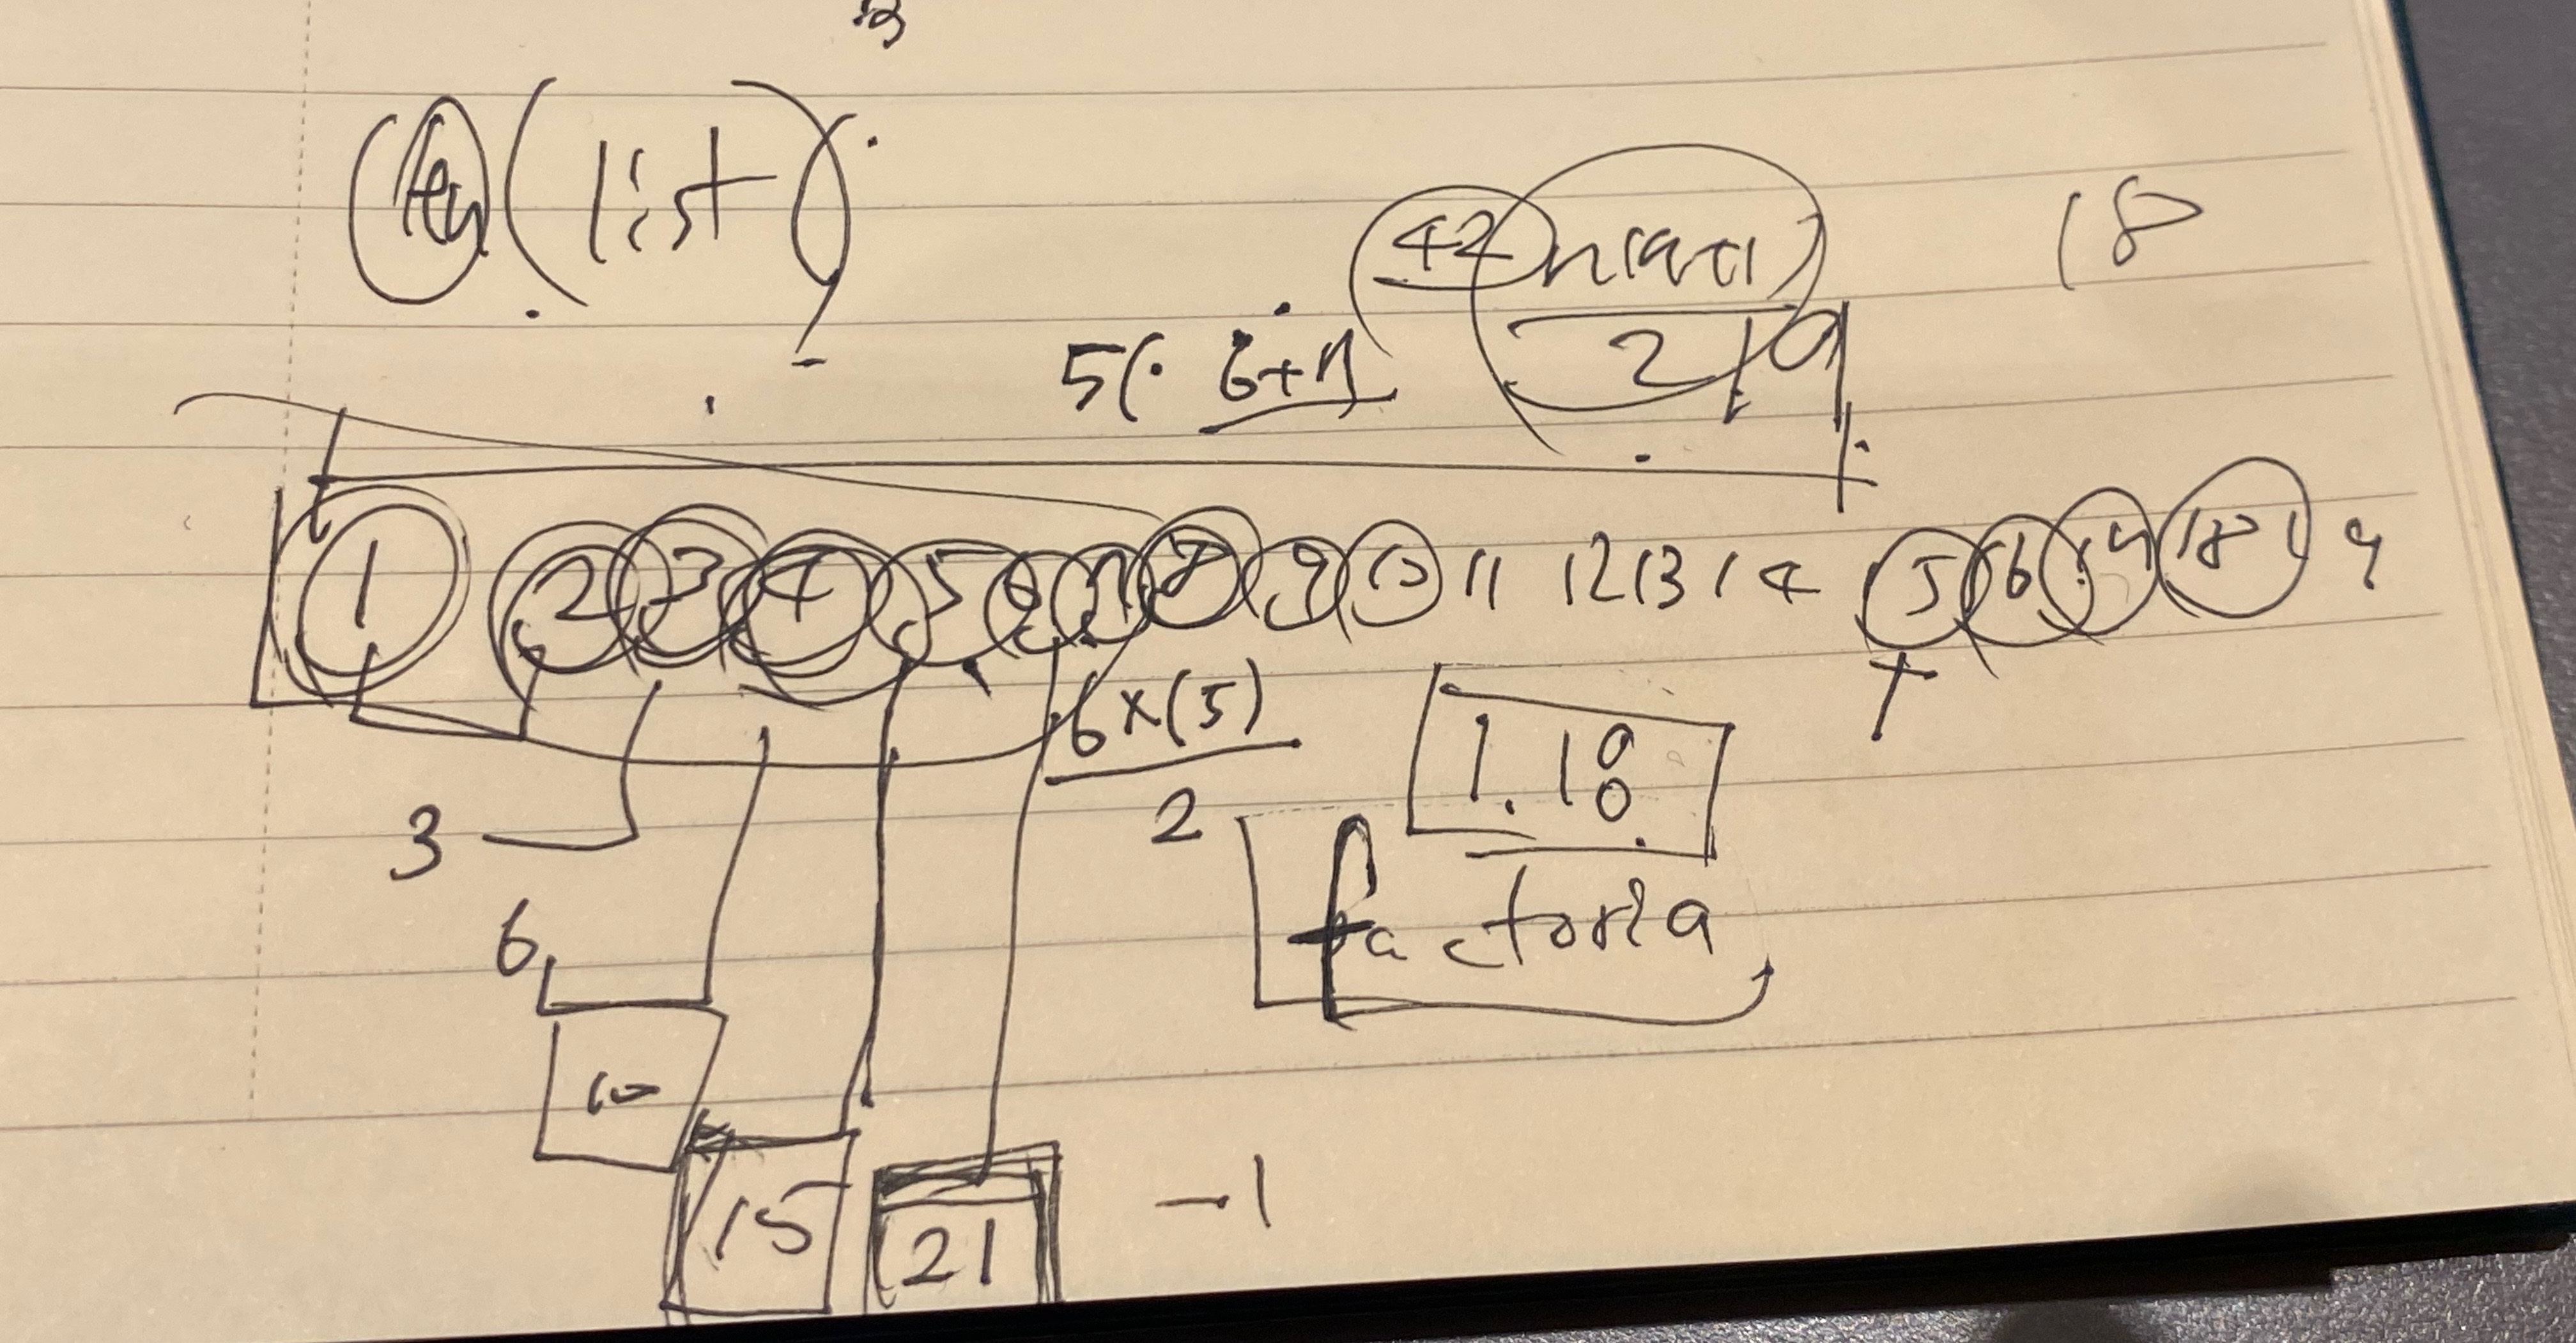 len(list)
42 n(n+1)
2
18
5(. 6+7
1 2 3 4 5 6 7 8 9 10 11 12 13 14 5 6 18 19
6×(5)
2
1.18
3
factoria
6
10
15
21
-1